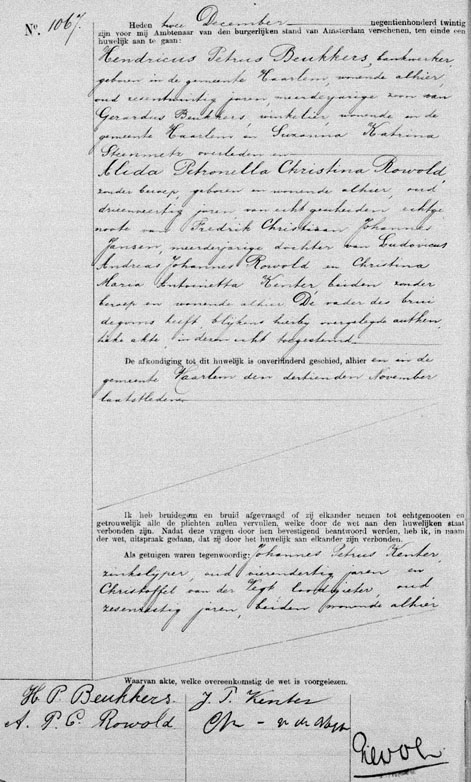 No. 1067.
Heden twee December negentienhonderd twintig
zijn voor mij Ambtenaar van den burgerlijken stand van Amsterdam verschenen, ten einde een
huwelijk aan te gaan:
Hendricus Petrus Beukkers, bankwerker,
geboren in de gemeente Haarlem, wonende alhier,
oud zesentwintig jaren, meerderjarige zoon van
Gerardus Beukkers, winkelier, wonende in de
gemeente Haarlem en Suzanna Katrina
Steenmetz overleden en
Alida Petronella Christina Rowold,
zonder beroep geboren en wonende alhier, oud
drieenveertig jaren, van echt gescheiden echtge
noote van Fredrik Christiaan Johannes
Jansen, meerderjarige dochter van Ludovicus
Andreas Johannes Rowold en Christina
Maria Antoinetta Kenter, beiden zonder
beroep en wonende alhier. De vader des brui
degoms heeft blijkens hierbij overgelegde authen
tieke akte, in dezen echt toegestemd.
De afkondiging tot dit huwelijk is onverhinderd geschied, alhier en in de
gemeente Haarlem den dertienden November
laatstleden.
Ik heb bruidegom en bruid afgevraagd of zij elkander nemen tot echtgenooten en
getrouwelijk alle de plichten zullen vervullen, welke door de wet aan den huwelijken staat
verbonden zijn. Nadat deze vragen door hen bevestigend beantwoord werden, heb ik, in naam
der wet, uitspraak gedaan, dat zij door het huwelijk aan elkander zijn verbonden.
Als getuigen waren tegenwoordig: Johannes Petrus Kenter,
zinkolyper, oud vierendertig jaren en
Christoffel van der Vegt loodgieter, oud
zesenzestig jaren, beiden wonende alhier
Waarvan akte, welke overeenkomstig de wet is voorgelezen.
H. P. Beukkers. J. P. Kenter
A. P. C. Rowold